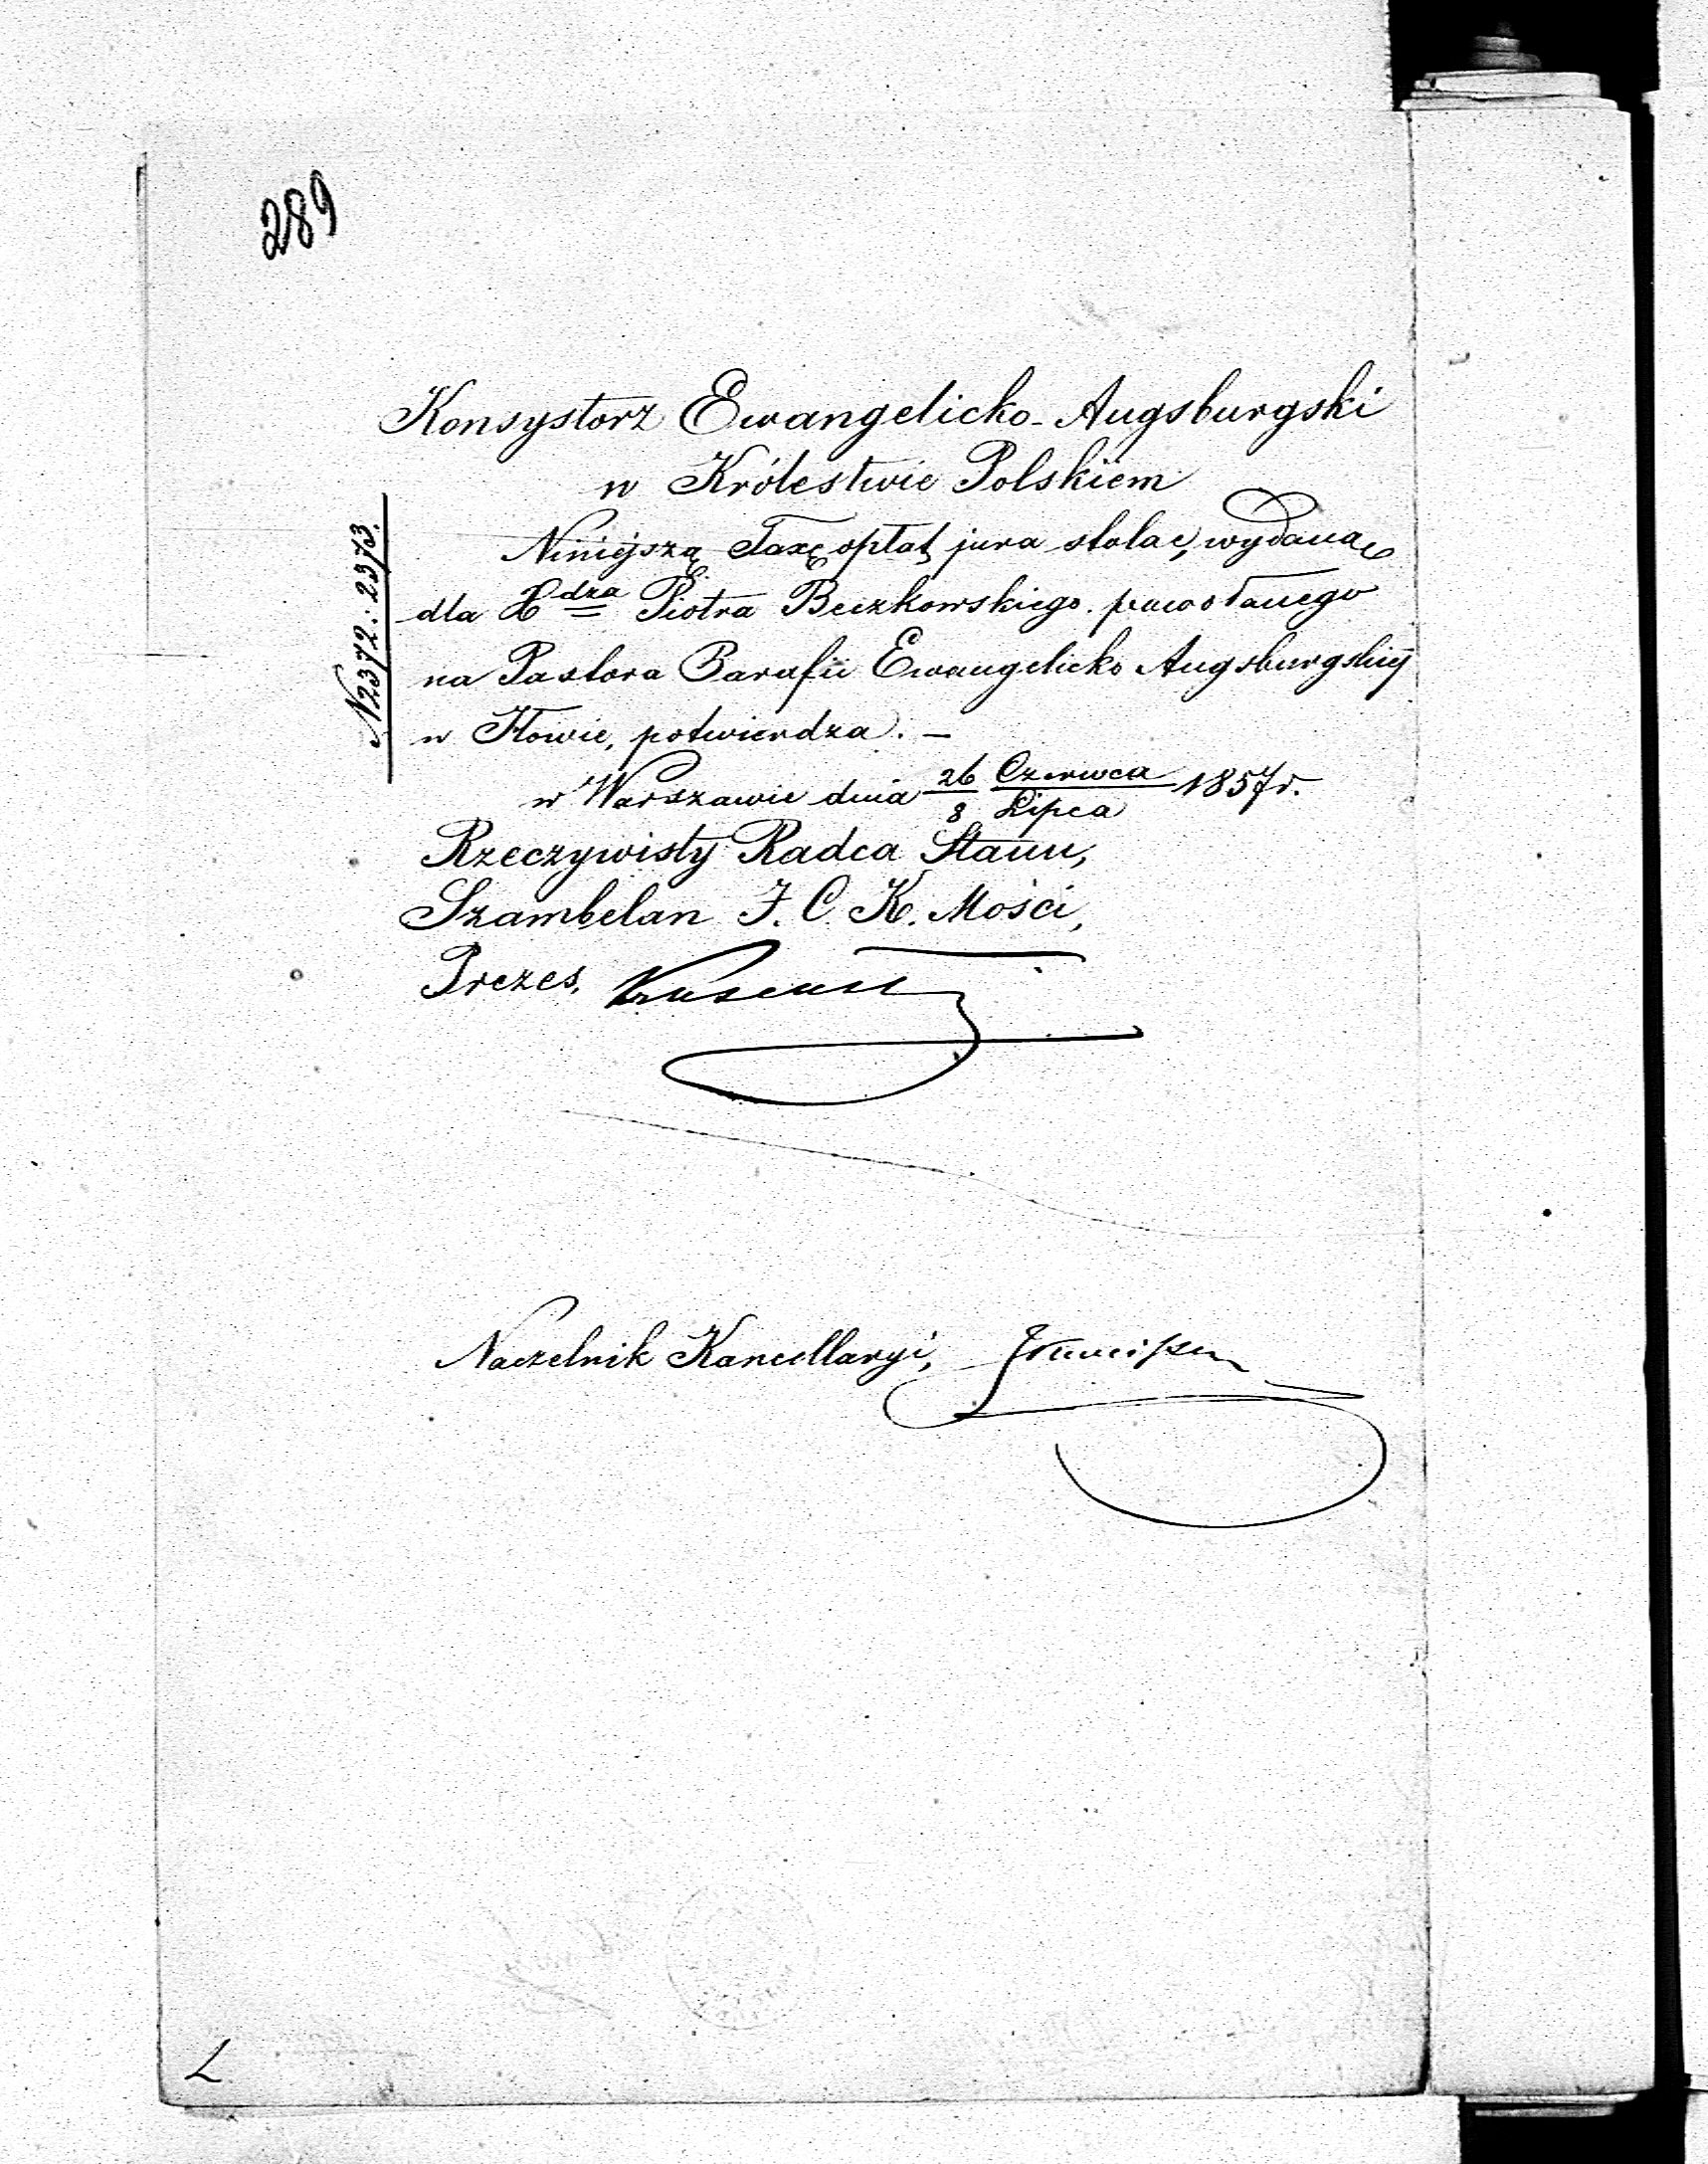 289
N 2372. 2373.
Konsystorz Ewangelicko-Augsburgski
w Królestwie Polskiem
Niniejszą Taxę opłat jura stolae, wydaną
dla Xdza Piotra Beczkowskiego powołanego
na Pastora Parafii Ewangelicko Augsburgskiej
w Iłowie, potwierdza. —
w Warszawie dnia 26 Czerwca / 8 Lipca 1857 r.
Rzeczywisty Radca Stanu,
Szambelan J. C. K. Mości,
Prezes,
Naczelnik Kancellaryi,
L